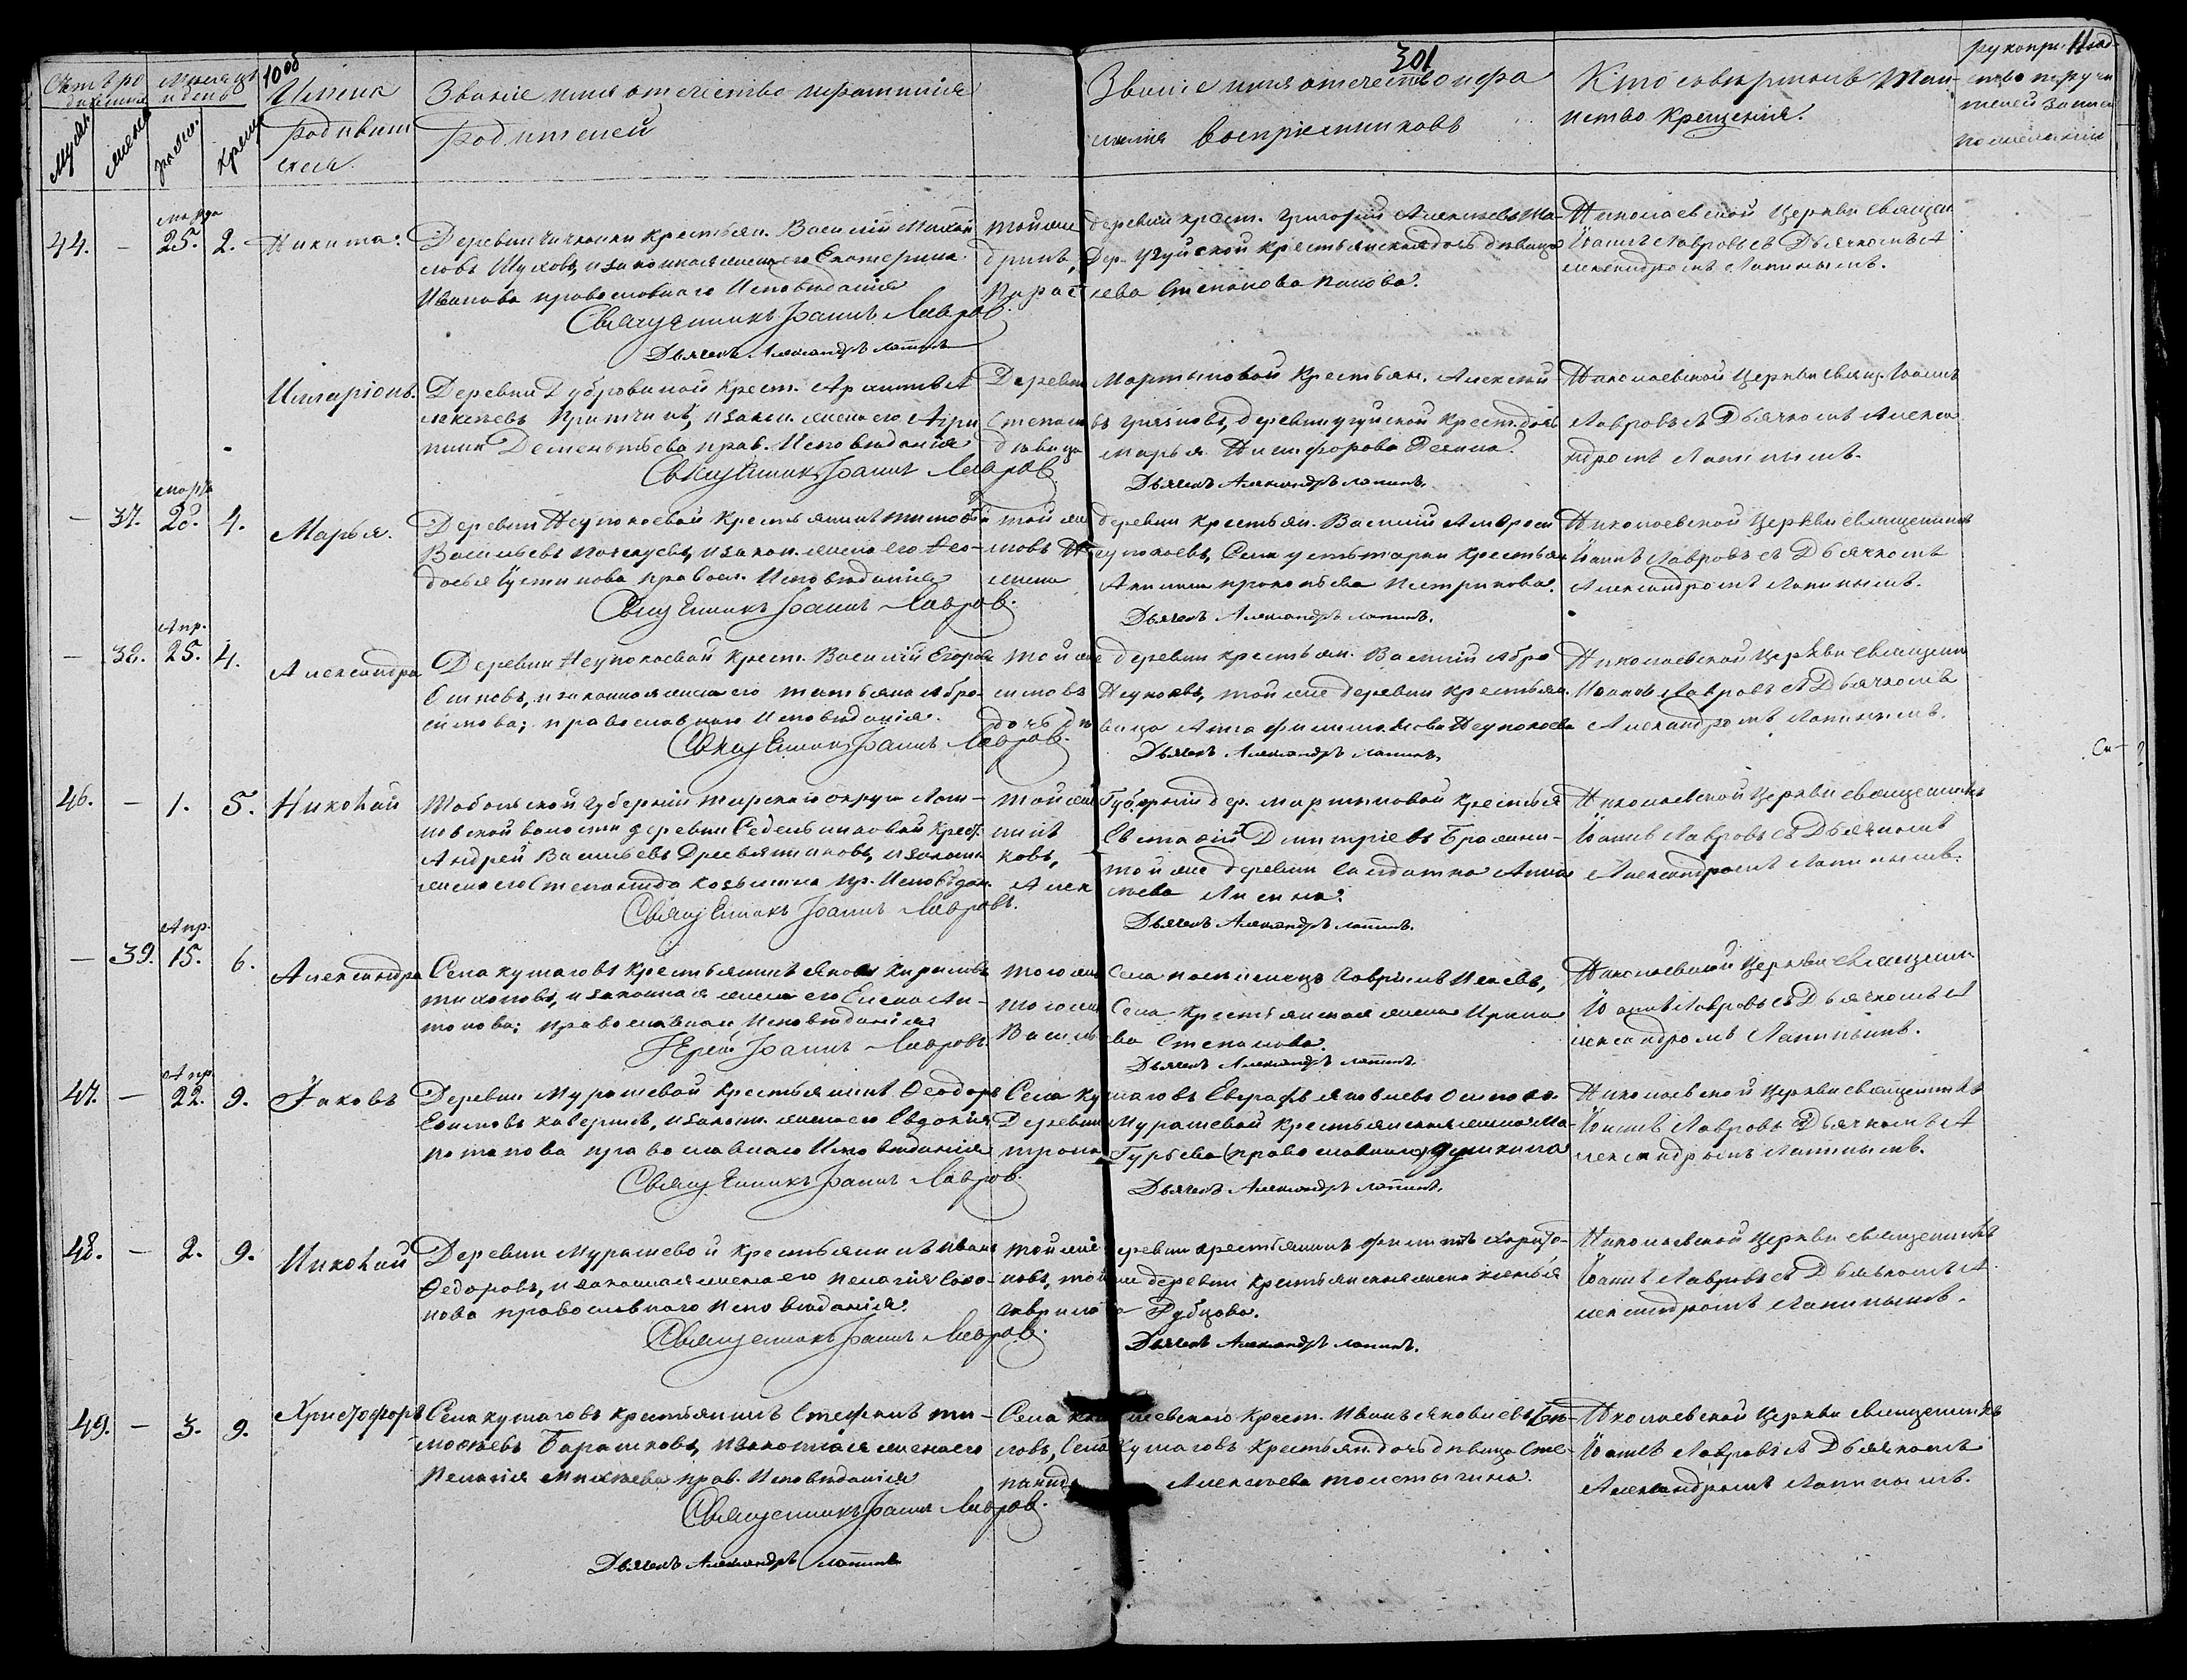 10об
301
11
Счетъ ро
дившихся
Месяцъ
и день
Муж.
женск.
рожд.
крещ.
Имена
родивших
ся.
Званіе имя отчество и фамилія
родителей
Званіе имя отечество и фа
милія воспріемниковъ
Кто совершалъ таи-
нство крещенія.
рукопри
ство
телей записи
по желанію
44. — марта 25. 2. Никита.
Деревни крестьян. Василій Михай
ловъ Шуховъ, и законная жена его Екатерина
Иванова православнаго Исповѣданія
Священникъ Іоаннъ Лавровъ.
Дьячекъ Александръ Лапинъ
той же деревни крест. Григорій Алексѣевъ Ша-
дринъ, Дер. Угуйской крестьянская дочь дѣвица
Параскева Степанова Попова.
Николаевской Церкви священ
Іоаннъ Лавровъ съ Дьячкомъ А
лександромъ Лапинымъ.
Иларіонъ.
Деревни Дубровиной крест. А
лексѣевъ, и закон. жена его Агри
пина Дементьева прав. Исповѣданія
Священникъ Іоаннъ Лавровъ
Деревни Мартыновой Крестьян. Алексѣй
Степановъ, деревни угуйской крест. дочь
дѣвица Марья Никифорова
Дьячекъ Александръ Лапинъ.
Николаевской Церкви свящ. Іоаннъ
Лавровъ съ Дьячкомъ Алекса
ндромъ Лапинымъ.
— 37. марта 28. 4. Марья.
Деревни Неупокоевой Крестьянинъ Тимофѣй
Васильевъ, и закон. жена его Ѳео-
досья Устинова правосл. Исповѣданія
Священникъ Іоаннъ Лавровъ.
той же деревни крестьян. Василій Аброси
мовъ Неупокоевъ, Села устьтарки крестьян
жена Акилина прокопьева Петрикова.
Дьячекъ Александръ Лапинъ.
Николаевской Церкви священникъ
Іоаннъ Лавровъ съ Дьячкомъ
Александромъ Лапинымъ.
— 38. Апр. 25. 4. Александра
Деревни Неупокоевой крест. Василій Егоровъ
, и законная жена его Татьяна Абро-
симова; православнаго Исповѣданія.
Священникъ Іоаннъ Лавровъ.
той же деревни крестьян. Василій Абро
симовъ Неупокоевъ, той же деревни крестьян.
дочь дѣвица Анна Филимонова Неупокоева
Дьячекъ Александръ Лапинъ.
Николаевской Церкви Священникъ
Іоаннъ Лавровъ съ Дьячкомъ
Александромъ Лапинымъ.
46. — 1. 5. Николай
Тобольской Губерніи Тарскаго округа Логи-
новской волости деревни Седельниковой крест.
Андрей Васильевъ Древятниковъ, и законн
жена его Степанида Козьмина пр. Исповѣдан.
Священникъ Іоаннъ Лавровъ.
той же Губерніи дер. Мартыновой крестья
нинъ Евстафій Димитріевъ Бражни-
ковъ, той же деревни солдатка Анна
Алексѣева Лисина.
Дьячекъ Александръ Лапинъ.
Николаевской Церкви священникъ
Іоаннъ Лавровъ съ Дьячкомъ
Александромъ Лапинымъ.
— 39. Апр. 15. 6. Александра
Села кушаговъ крестьянинъ Яковъ Кириловъ
Тихоновъ, и законная жена его Елена Ан-
тонова; православнаго Исповѣданія
Іерей Іоаннъ Лавровъ.
того же Села поселенецъ Гаврилъ Исаевъ,
того же Села крестьянская жена Ирина
Васильева Степанова.
Дьячекъ Александръ Лапинъ.
Николаевской Церкви священникъ
Іоаннъ Лавровъ съ Дьячкомъ А
лександромъ Лапинымъ.
47. — Апр. 22. 9. Іаковъ
Деревни Мурашевой крестьянинъ Ѳеодоръ
Ефимовъ Каверинъ, и законн. жена его Евдокія
Потапова православнаго Исповѣданія
Священникъ Іоаннъ Лавровъ.
Села Кушаговъ Евграфъ яковлевъ
Деревни Мурашевой крестьянская жена Ма-
трона Гурьева (православная)
Дьячекъ Александръ Лапинъ.
Николаевской Церкви священникъ
Іоаннъ Лавровъ Дьячкомъ А
лександромъ Лапинымъ.
48. — 2. 9. Николай
Деревни Мурашевой крестьянинъ Иванъ
Ѳедоровъ, и законная жена его Пелагія
нова православнаго Исповѣданія.
Священникъ Іоаннъ Лавровъ.
той же деревни крестьянинъ Филиппъ Харито-
новъ, той же деревни крестьянская жена
Гаврилова Рубцова.
Дьячекъ Александръ Лапинъ.
Николаевской Церкви священникъ
Іоаннъ Лавровъ съ Дьячкомъ А
лександромъ Лапинымъ.
49. — 3. 9. Христофоръ
Села кушаговъ крестьянинъ Стефанъ Ти-
мофѣевъ Барашковъ, и законная жена его
Пелагія Михѣева прав. Исповѣданія
Священникъ Іоаннъ Лавровъ.
Дьячекъ Александръ Лапинъ
Села крест. Иванъ яковлевъ
ловъ, Села Кушаговъ крестьян. дочь дѣвица Сте-
панида Алексѣева Толстыгина.
Николаевской Церкви священникъ
Іоаннъ Лавровъ съ Дьячкомъ
Александромъ Лапинымъ.